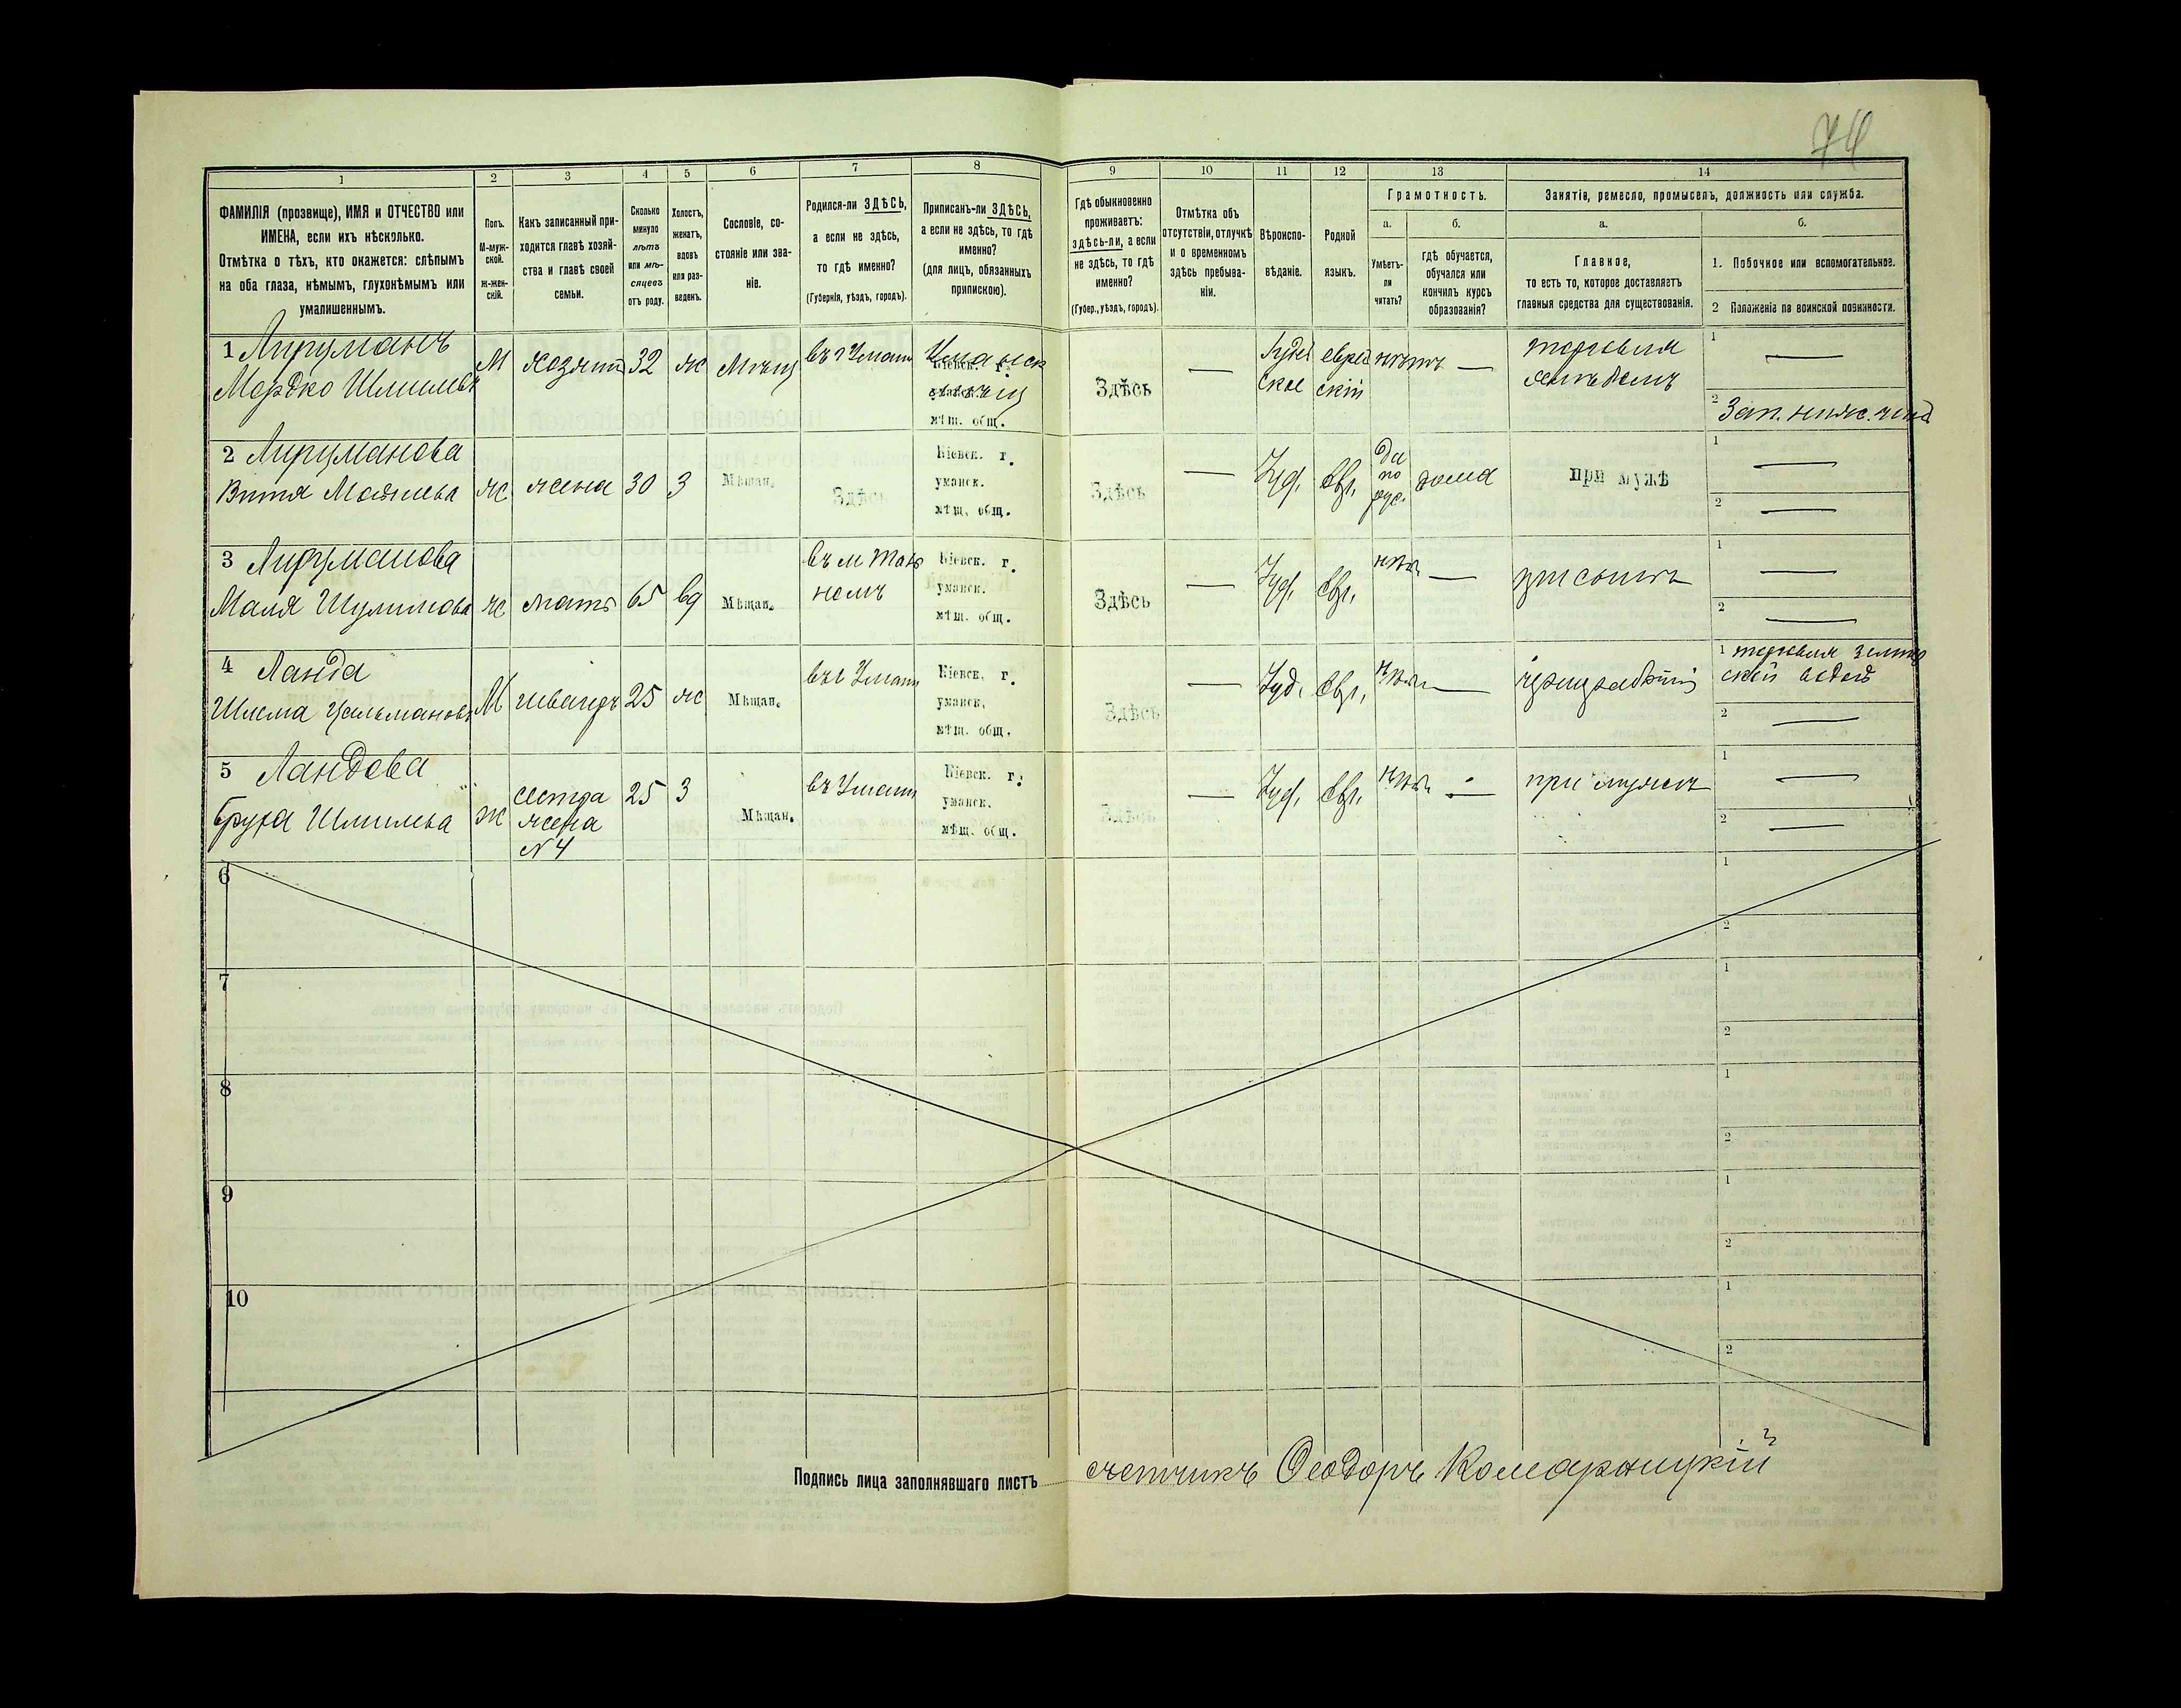 74
1 2 3 4 5 6 7 8 9 10 11 12 13 14
ФАМИЛІЯ (прозвище), ИМЯ и ОТЧЕСТВО или
ИМЕНА, если ихъ нѣсколько.
Отмѣтка о тѣхъ, кто окажется: слѣпымъ
на оба глаза, нѣмымъ, глухонѣмымъ или
умалишеннымъ.
Полъ.
М-муж-
ской.
Ж-жен-
скій.
Какъ записанный при-
ходится главѣ хозяй-
ства и главѣ своей
семьи.
Сколько
минуло
лѣтъ
или мѣ-
сяцевъ
отъ роду.
Холостъ,
женатъ,
вдовъ
или раз-
веденъ.
Сословіе, со-
стояніе или зва-
ніе.
Родился-ли ЗДѢСЬ,
а если не здѣсь,
то гдѣ именно?
(Губернія, уѣздъ, городъ).
Приписанъ-ли ЗДѢСЬ,
а если не здѣсь, то гдѣ
именно?
(для лицъ, обязанныхъ
припискою).
Гдѣ обыкновенно
проживаетъ:
здѣсь-ли, а если
не здѣсь, то гдѣ
именно?
(Губер., уѣздъ, городъ).
Отмѣтка объ
отсутствіи, отлучкѣ
и о временномъ
здѣсь пребыва-
ніи.
Вѣроиспо-
вѣданіе.
Родной
языкъ.
Грамотность.
а. б.
Умѣетъ-
ли
читать?
гдѣ обучается,
обучался или
кончилъ курсъ
образованія?
Занятіе, ремесло, промыселъ, должность или служба.
а. б.
Главное,
то есть то, которое доставляетъ
главныя средства для существованія.
1. Побочное или вспомогательное.
2 Положеніе по воинской повинности.
1
Мордко Шлиомов
М
хозяинъ
32
ж
Мѣщ
въ г Умани
Уманск
Кіевск. г.
мѣщ
мѣщ. общ.
Здѣсь
—
Іудей
ское
еврей
скій
нѣтъ —
торговля
хлѣбомъ
1 —
2 Зап. нижн. чинъ
2
жена 30 З
Мѣщан.
Здѣсь
Кіевск. г.
уманск.
мѣщ. общ.
Здѣсь
—
Іуд. Евр.
да
по
рус.
дома
при мужѣ
1 —
2 —
3
Маля
ж мать 65 вд
Мѣщан.
въ м
Кіевск. г.
уманск.
мѣщ. общ.
Здѣсь
—
Іуд. Евр. нѣт. —
при сынѣ
1 —
2 —
4 Ланда
Шлема
М шваеръ 25 ж
Мѣщан.
въ г Умани
Кіевск. г.
уманск.
мѣщ. общ.
Здѣсь
—
Іуд. Евр. нѣт. —
1 торговля
водой
2 —
5 Ландова
Бруха
ж
сестра
жена
№ 4
25 З
Мѣщан.
въ Умани
Кіевск. г.
уманск.
мѣщ. общ.
Здѣсь
—
Іуд. Евр. нѣт. —
при мужѣ
1 —
2 —
6
1
2
7
1
2
8
1
2
9
1
2
10
1
2
Подпись лица заполнявшаго листъ счетчикъ Ѳеодоръ Комарницкій